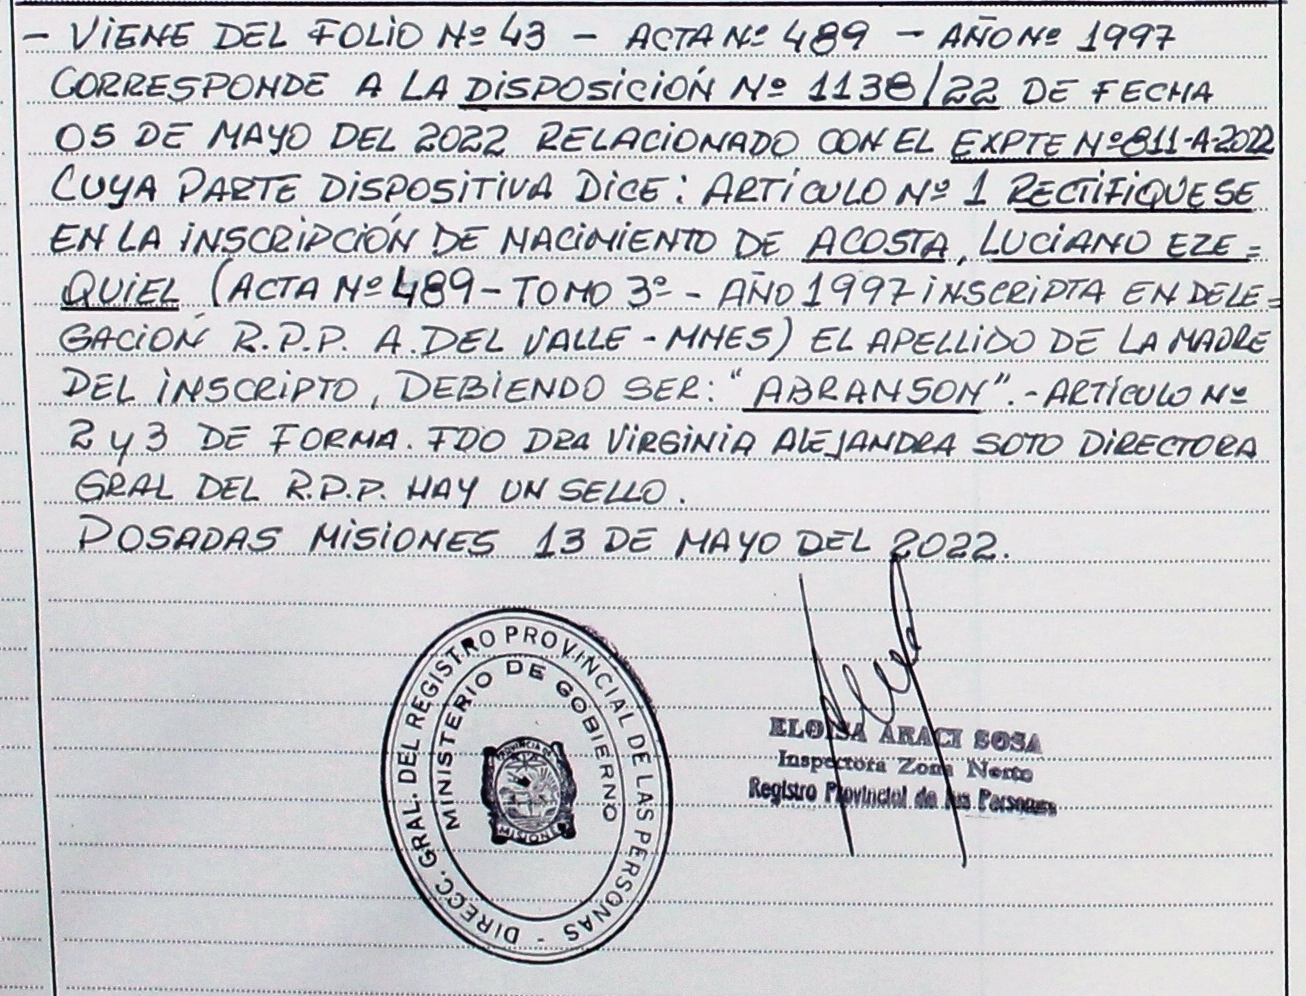 - VIENE DEL FOLIO Nº 43 - ACTA Nº 489 - AÑO Nº 1997
CORRESPONDE A LA DISPOSICIÓN Nº 1138/22 DE FECHA
05 DE MAYO DEL 2022 RELACIONADO CON EL EXPTE Nº 811-A-2022
CUYA PARTE DISPOSITIVA DICE: ARTÍCULO Nº 1 RECTIFIQUESE
EN LA INSCRIPCIÓN DE NACIMIENTO DE ACOSTA, LUCIANO EZE=
QUIEL (ACTA Nº 489 - TOMO 3º - AÑO 1997 INSCRIPTA EN DELE=
GACIÓN R.P.P. A. DEL VALLE - MNES) EL APELLIDO DE LA MADRE
DEL INSCRIPTO, DEBIENDO SER: "ABRANSON". - ARTÍCULO Nº
2 y 3 DE FORMA. FDO DRA VIRGINIA ALEJANDRA SOTO DIRECTORA
GRAL DEL R.P.P. HAY UN SELLO.
POSADAS MISIONES 13 DE MAYO DEL 2022.
DIRECC. GRAL. DEL REGISTRO PROVINCIAL DE LAS PERSONAS -
MINISTERIO DE GOBIERNO
PROVINCIA DE
MISIONES
ELOISA ARACI SOSA
Inspectora Zona Norte
Registro Provincial de las Personas